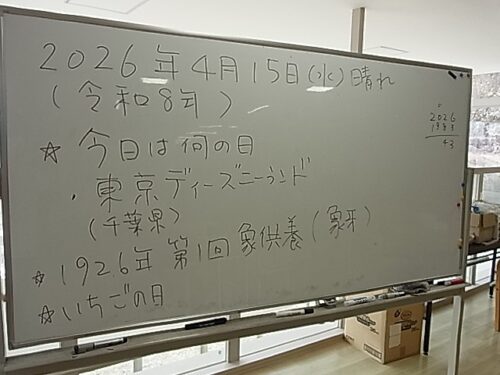 2026年4月15日(水)晴れ
(令和8年)
☆今日は何の日
・東京ディーズニーランド
(千葉県)
☆1926年第1回象供養(象牙)
☆いちごの日
2026
1983
43